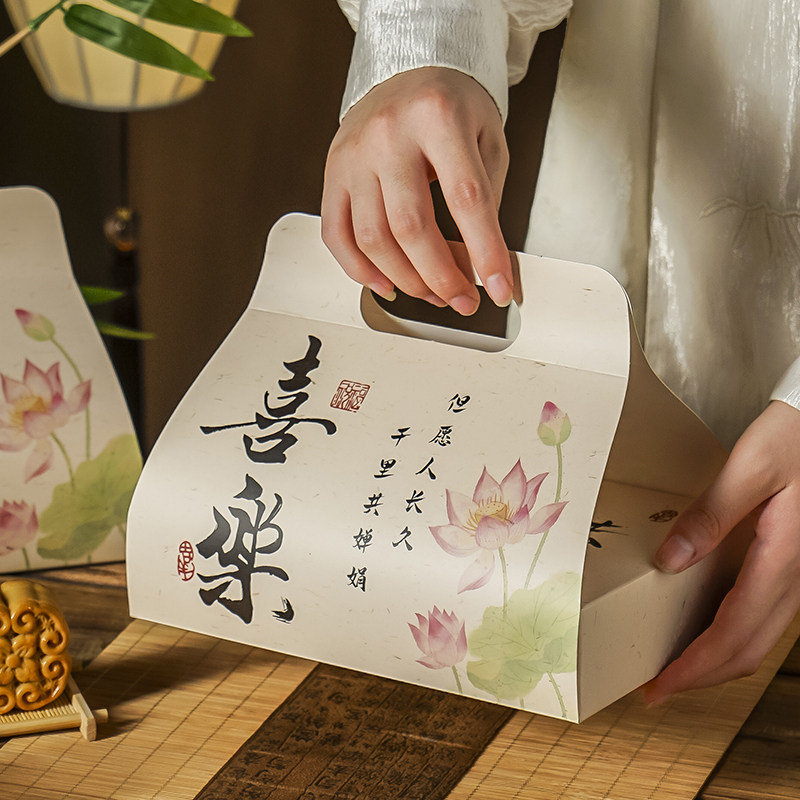 喜樂
但愿人长久
千里共婵娟